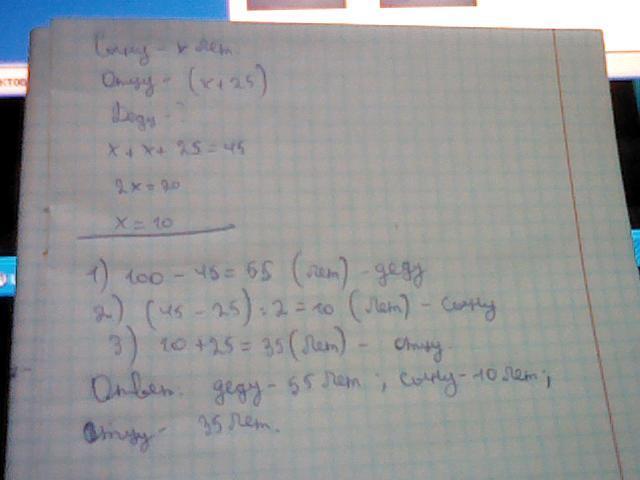 Сыну - x лет.
Отцу - (x+25)
Деду - ?
x + x + 25 = 45
2x = 20
x = 10
1) 100 - 45 = 55 (лет) - деду
2) (45 - 25) : 2 = 10 (лет) - сыну
3) 10 + 25 = 35 (лет) - отцу.
Ответ: деду - 55 лет ; сыну - 10 лет ;
отцу - 35 лет.